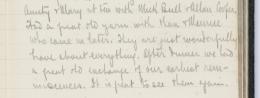 & Mary at tea with Mick Bull & Allan Cooper.
Had a great old yarn with them &
who came in later. They are just wonderfully
have about everything. After dinner we had
a great old exchange of our earliest rem-
iniscences. It is great to see them again.